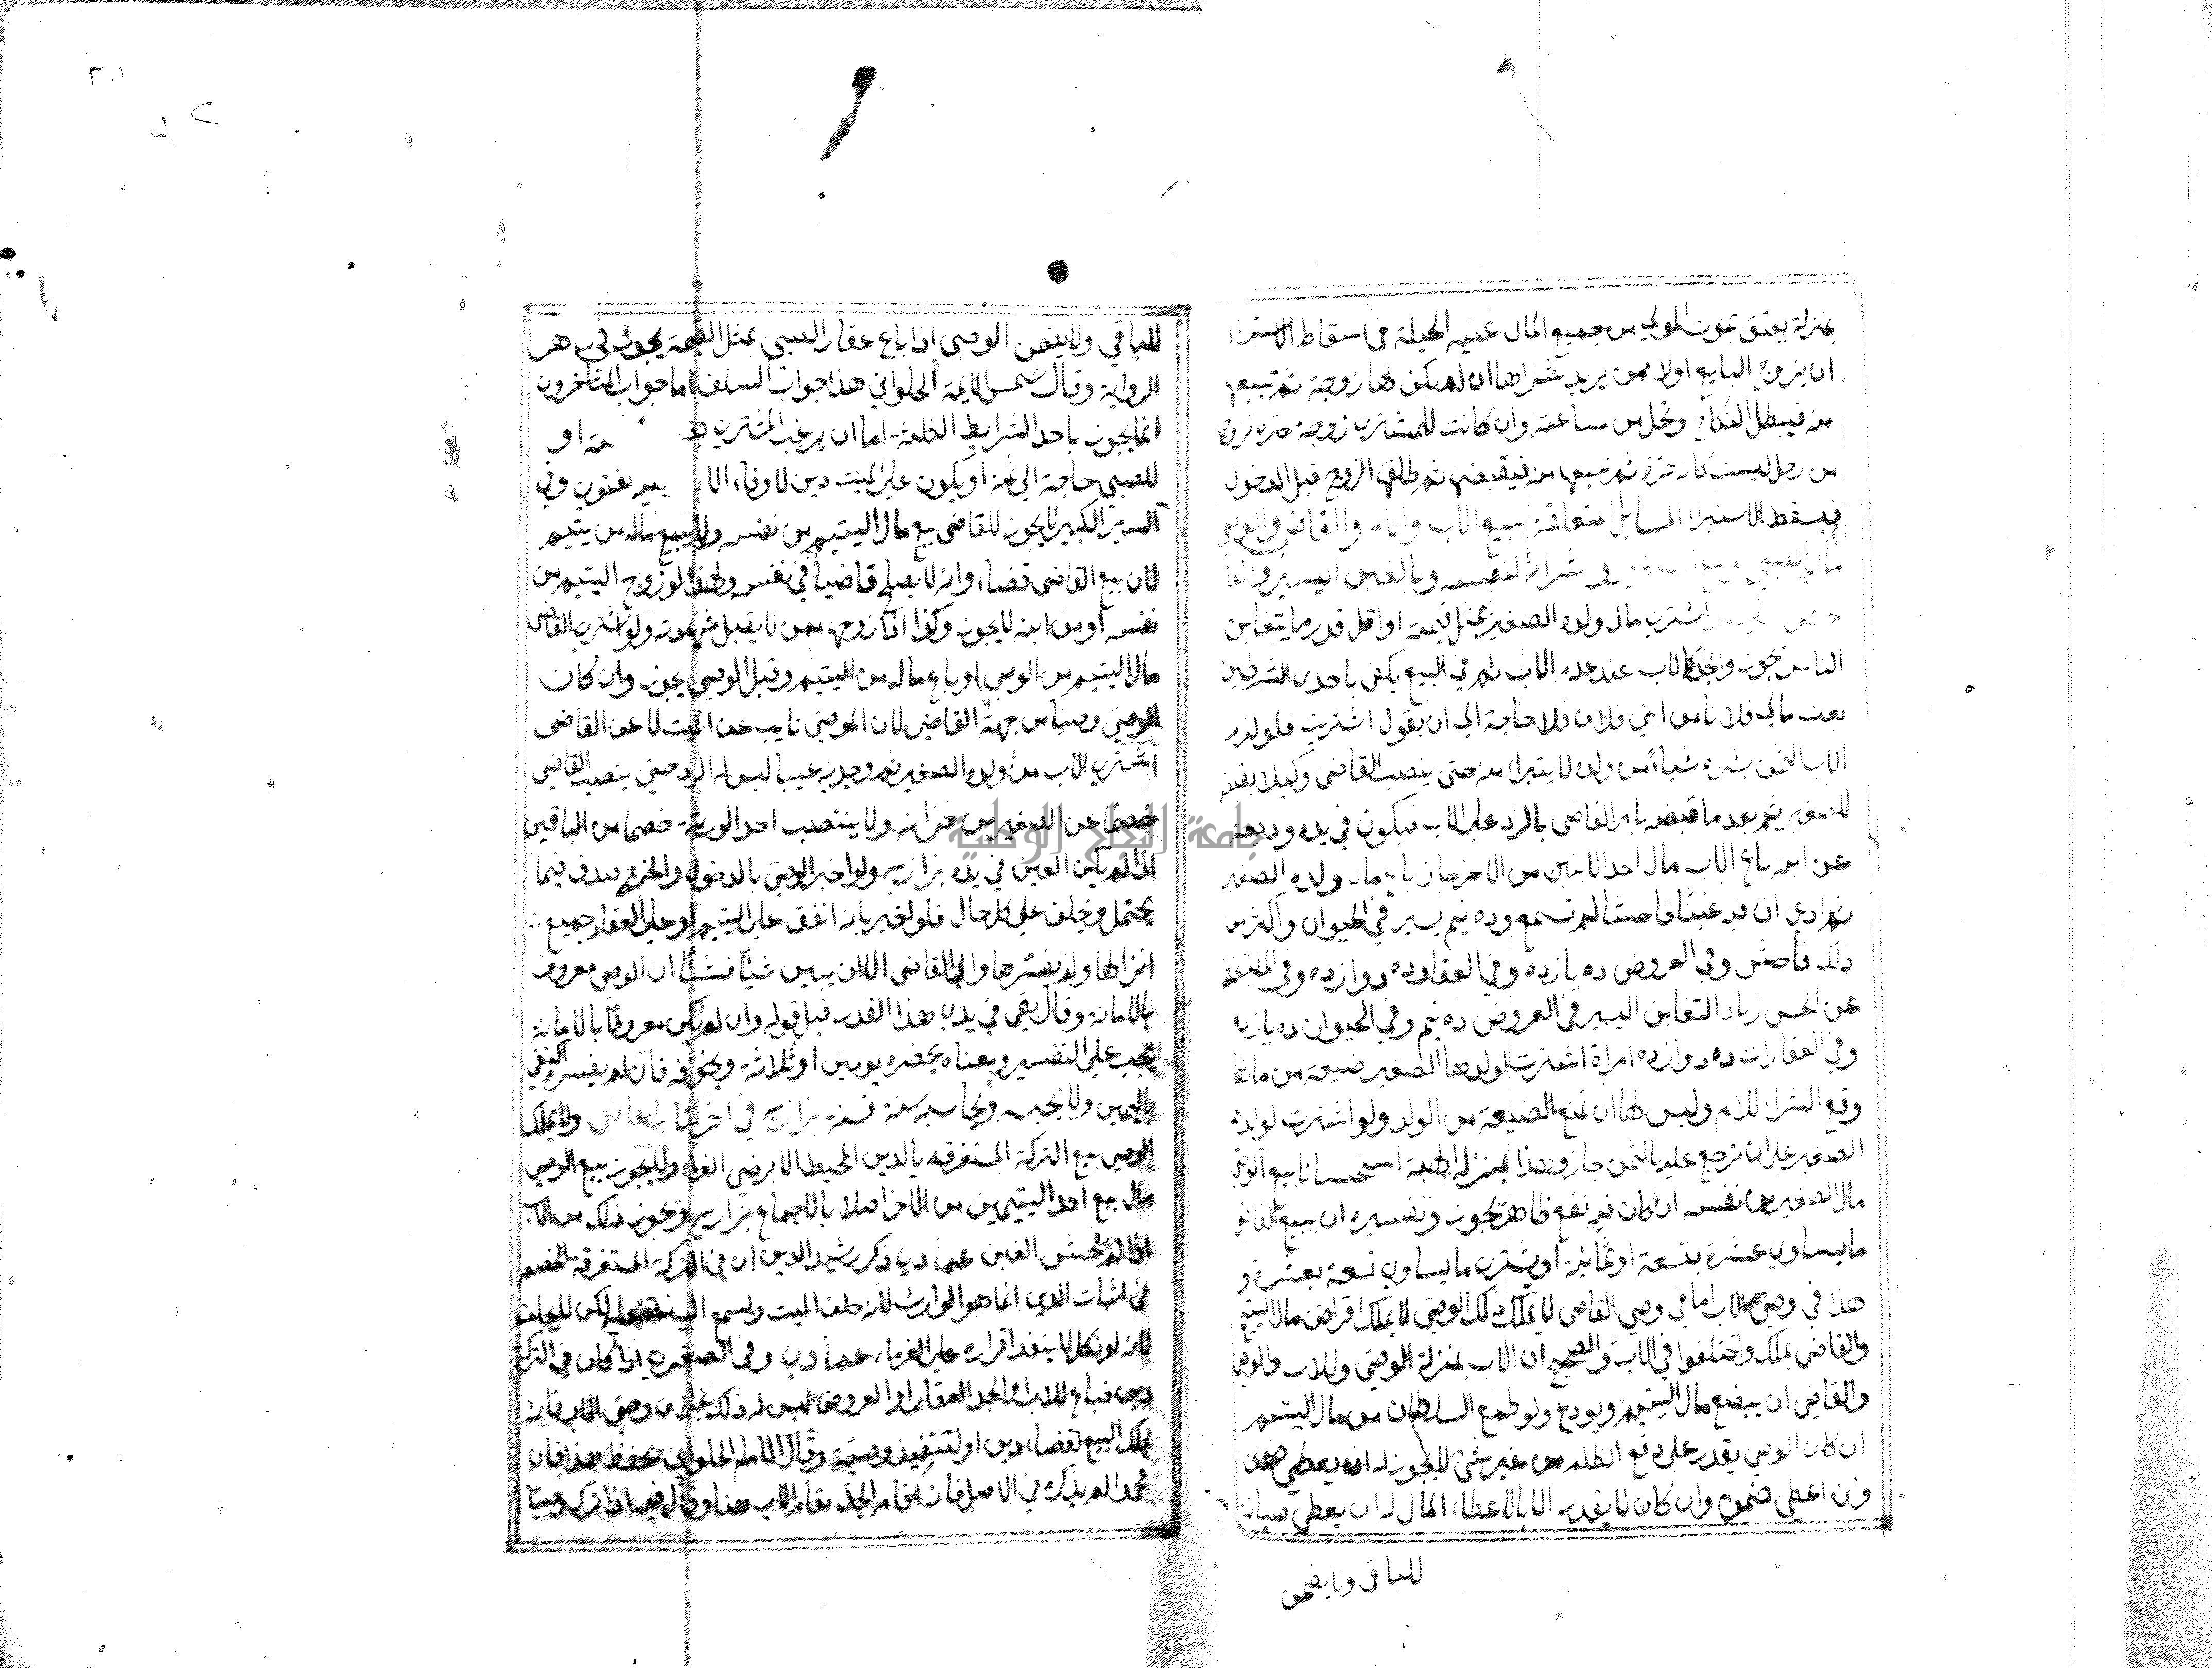 بمنزلة يعتق بموت المولى من جميع المال غنيه الحيلة في اسقاط الاستبرا
ان يزوج البايع اولا ممن يريد شراها ان لم يكن لها زوجة ثم تبيعها
منه فيبطل النكاح وتحل من ساعته وان كانت للمشتري زوجة حرة
من رجل ليست كانه حرة ثم نبيعها منه فيقبضها ثم طلقها الزوج قبل الدخول
فيسقط الاستبراء المسايل متعلقة ببيع الاب والقاضي والوصي
مال الصبي وشرائه لنفسه وبالغبن اليسير
اشترى مال ولده الصغير بمثل قيمته او اقل قدر ما يتغابن
الناس يجوز والجد كالاب عند عدم الاب ثم في البيع يكفي باحدى الشرطين
بعت مالي فلانا من ابني فلان فلا حاجة الى ان يقول اشتريت فلو لدر
الاب الثمن بشره شياء من ولده لا يتبرا منه حتى ينصب القاضي وكيلا يقبضه
للصغير ثم بعد ما قبضه يامر القاضي بالرد على الاب فيكون في يده وديعة
عن ابنه باع الاب مال احد الابنين من الاخر جاز باع مال ولده الصغير
ثم ادعى ان فيه غبنا فاحشا لم تسمع وده نيم يسير في الحيوان واكثر من
ذلك فاحش وفي العروض ده يازده وفي العقار ده دوازده وفي الملتقط
عن الحسن زياد التغابن اليسير في العروض ده نيم وفي الحيوان ده يازده
وفي العقارات ده دوازده امراة اشترت لولدها الصغير ضيعة من مالها
وقع الشرا للام وليس لها ان تمنع الضيعة من الولد ولو اشترت لولده
الصغير على ان ترجع عليه بالثمن جاز وهذا بمنزلة الهبة استحسانا بيع الوصي
مال الصغير من نفسه ان كان فيه نفع ظاهر يجوز وتفسيره ان يبيع القاضي
ما يساوي عشرة بتسعة او ثمانية او يشتري ما يساوي تسعة بعشرة و
هذا في وصي الاب اما في وصي القاضي لا يملك ذلك الوصي لا يملك اقراض مال اليتيم
والقاضي يملك واختلفوا في الاب والصحيح ان الاب بمنزلة الوصي وللاب والوصي
والقاضي ان يبضع مال اليتيم ويودع ولو طمع السلطان من مال اليتيم
ان كان الوصي يقدر على دفع الظلم من غير شئ لا يجوز له ان يعطي ضمن
وان اعطى ضمن وان كان لا يقدر الا بالاعطاء المال له ان يعطي صيانة
للباقي ولا يضمن
للباقي ولا يضمن الوصي اذا باع عقار الصبي بمثل القيمة يجوز في ظاهر
الرواية وقال شمس الايمة الحلواني هذا جواب السلف اما جواب المتاخرون
انما يجوز باحد الشرايط الثلثة اما ان يرغب المشتري او
للصبي حاجة الى ثمنه او يكون على الميت دين لا وفاء الا وبه يفتوي وفي
السير الكبير لا يجوز للقاضي بيع مال اليتيم من نفسه ولا يبيع ماله من يتيم
لان بيع القاضي قضاء وانه لا يصلح قاضيا في نفسه ولهذا لو زوج اليتيم من
نفسه او من ابنه لا يجوز وكذا اذا زوجها ممن لا يقبل شهادته ولو اشترى القاضي
مال اليتيم من الوصي او باع ماله من اليتيم وقبل الوصي يجوز وان كان
الوصي وصيا من جهة القاضي لان الوصي نايب عن الميت لا عن القاضي
اشترى الاب من ولده الصغير ثم وجد به عيبا ليس له الرد حتى ينصب القاضي
خصما عن الصغير من خزانه ولا ينتصب احد الورثة خصما من الباقين
اذا لم يكن العين في يده بزازيه ولو اخبر الوصي بالدخول والخرج صدق فيما
يحتمل ويحلف على كل حال فلو اخبر بانه انفق على اليتيم او على العقار جميع
انزالها ولم يفسرها وابى القاضي الا ان يبين شيئا فشيئا ان الوصي معروف
بالامانة وقال بقي في يدي هذا القدر قبل قوله وان لم يكن معروفا بالامانة
يجب على التفسير ومعناه يحضره يومين او ثلاثة ويخوفه فان لم يفسر اكتفي
باليمين ولا يحبسه ويحاسبه سنة فسنة بزازيه في اخر ولا يملك
الوصي بيع التركة المستغرقه بالدين المحيط الا برضى الغرماء ولا يجوز بيع الوصي
مال بيع احد اليتيمين من الاخر اصلا بالاجماع بزازيه ويجوز ذلك من الاب
اذا لم يفحش الغبن عمادي ذكر رشيد الدين ان في التركة المستغرقة الخصم
في اثبات الدين انما هو الوارث لانه خلف الميت وتسمع البينة عليه لكن لا يحلف
لانه لو نكل لا ينفذ اقراره على الغرماء عمادي وفي الصغرى اذا كان في التركة
دين فباع الاب او الجد العقار او العروض ليس له ذلك بخلاف وصي الاب فانه
يملك البيع لقضاء دين او لتنفيذ وصية وقال الامام الحلواني يحفظ هذا فان
محمدا لم يذكره في الاصل فانه اقام الجد مقام الاب هنا وقال فيه اذا ترك وصيا
جامعة النجاح الوطنية